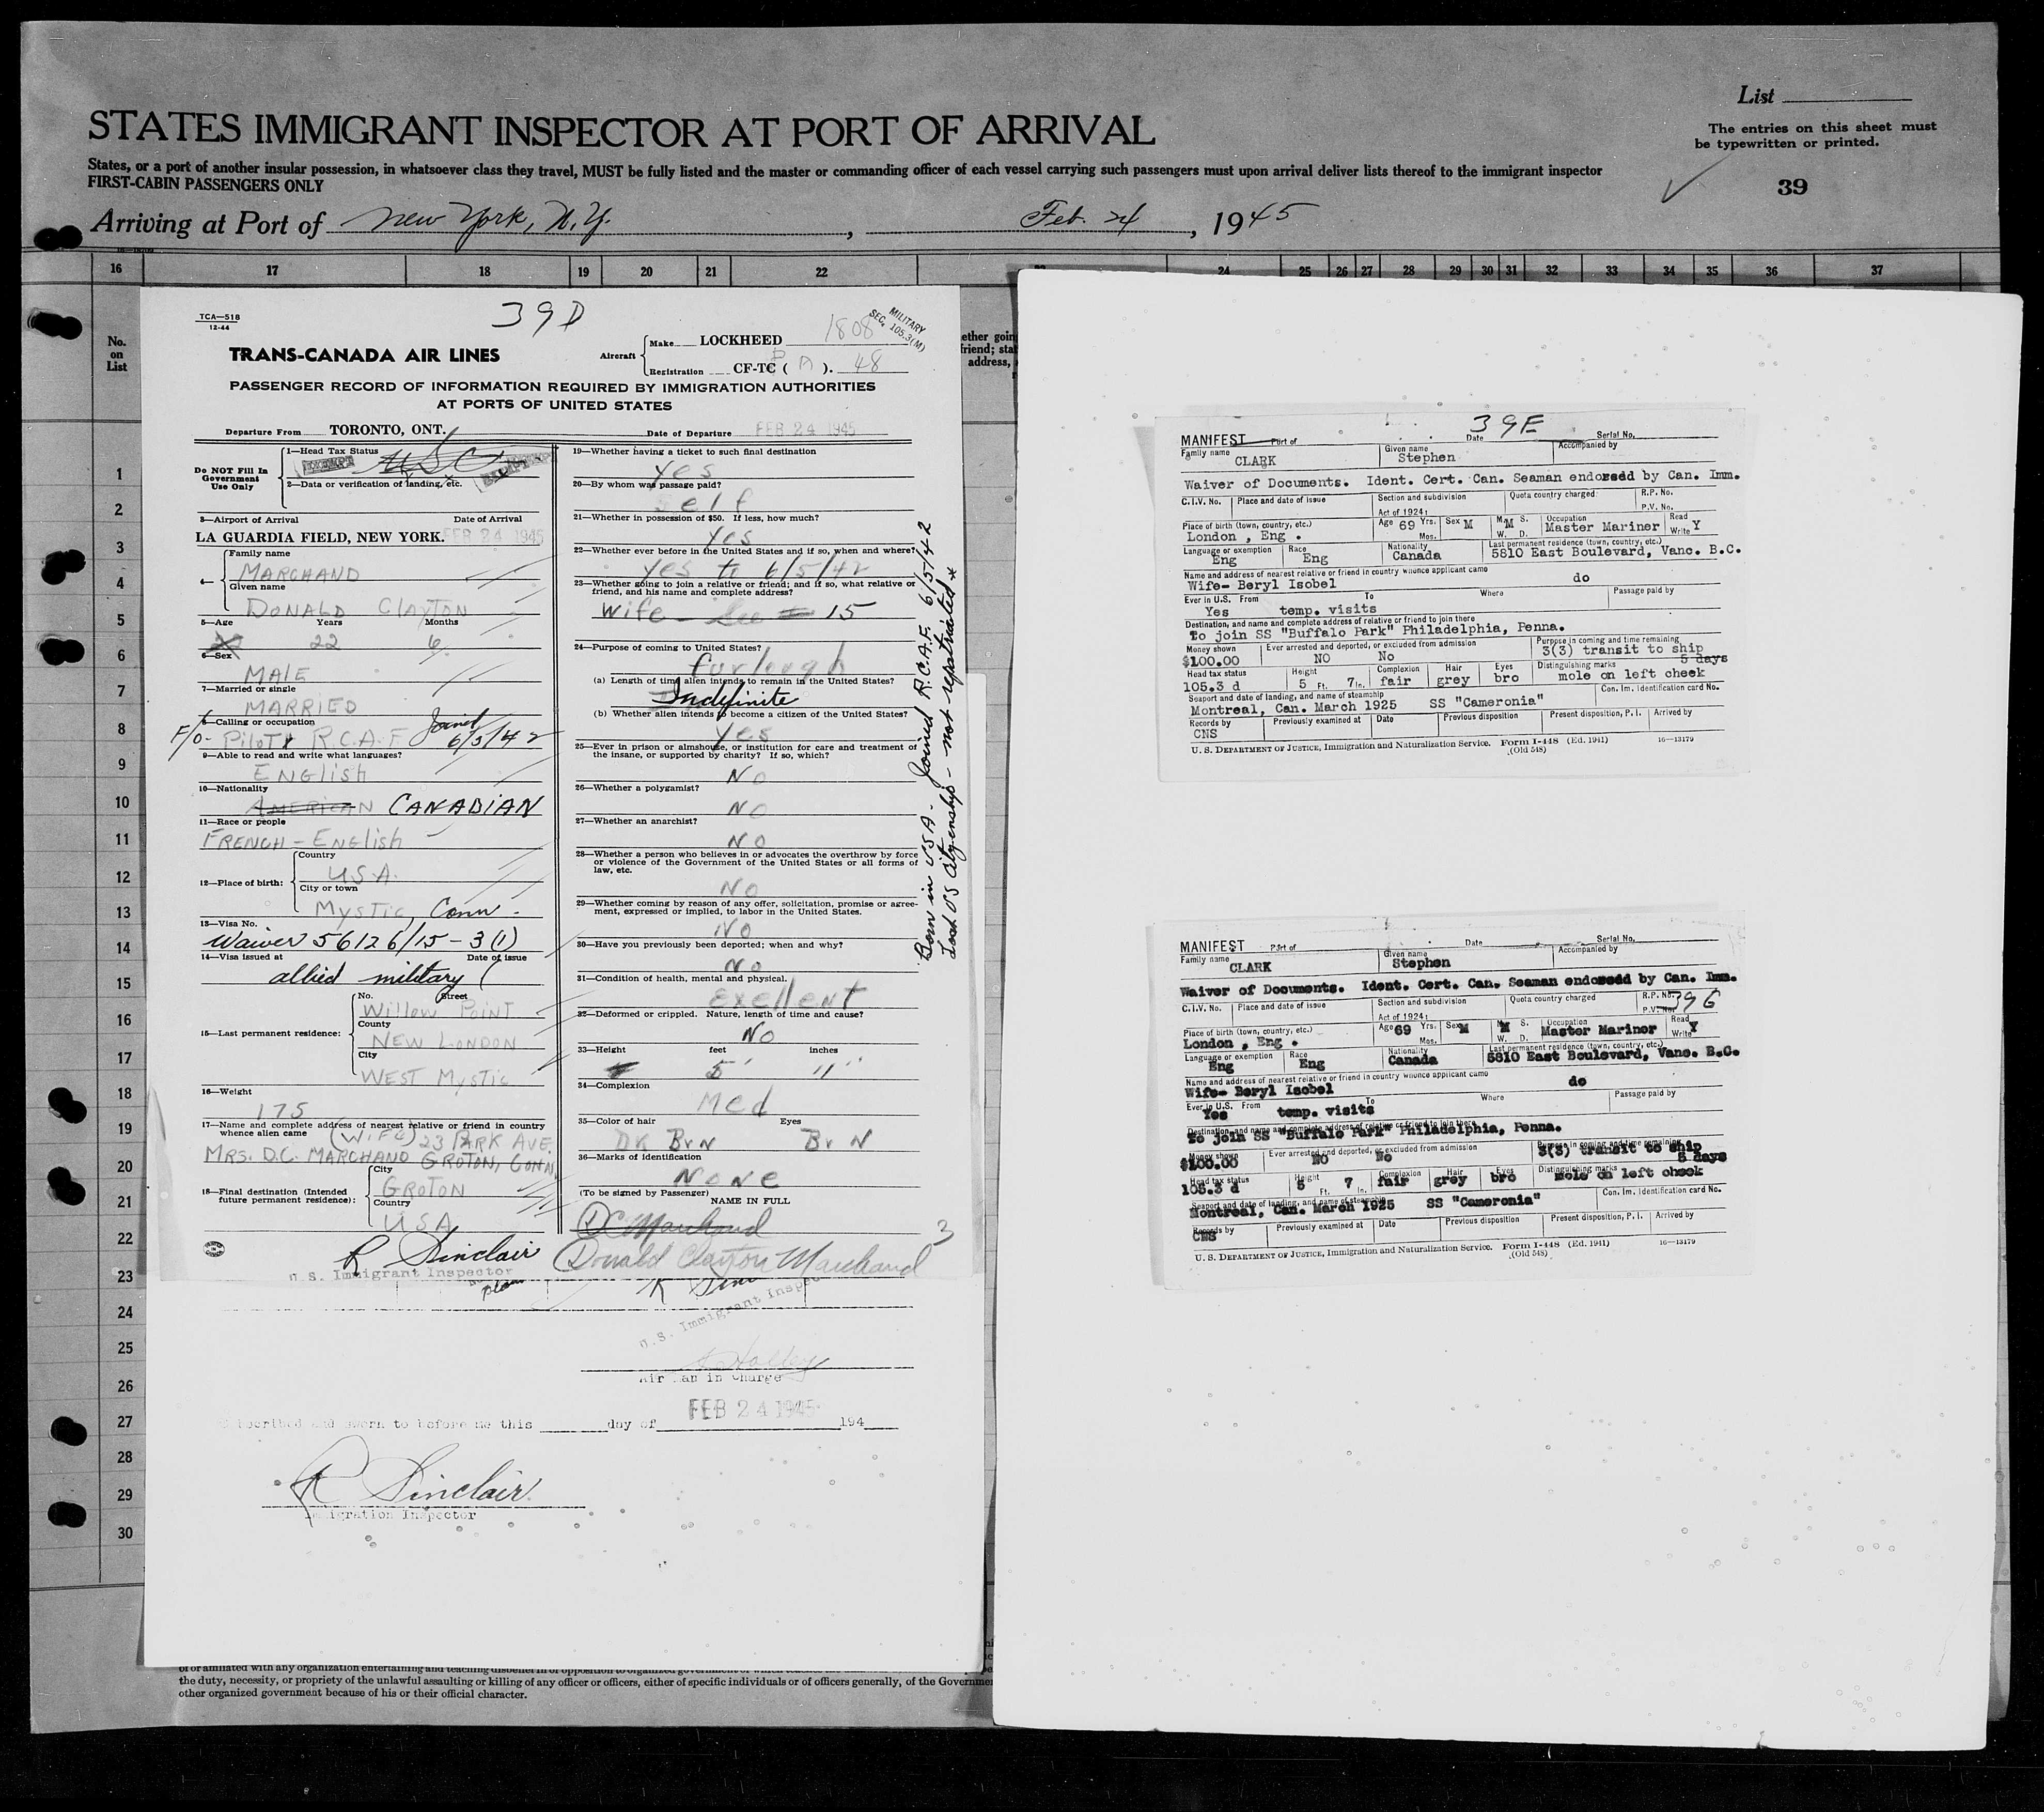 List
STATES IMMIGRANT INSPECTOR AT PORT OF ARRIVAL
The entries on this sheet must
be typewritten or printed.
States, or a port of another insular possession, in whatsoever class they travel, MUST be fully listed and the master or commanding officer of each vessel carrying such passengers must upon arrival deliver lists thereof to the immigrant inspector
FIRST-CABIN PASSENGERS ONLY
39
Arriving at Port of New York, N.Y., Feb. 24, 1945
16 17 18 19 20 21 22 24 25 26 27 28 29 30 31 32 33 34 35 36 37
No.
on
List
1
2
3
4
5
6
7
8
9
10
11
12
13
14
15
16
17
18
19
20
21
22
23
24
25
26
27
28
29
30
TCA—518
12-44
39D
MILITARY
SEC. 105.3(M)
TRANS-CANADA AIR LINES
Aircraft
Make LOCKHEED 1808
Registration CF-TC ( A ). 48
PASSENGER RECORD OF INFORMATION REQUIRED BY IMMIGRATION AUTHORITIES
AT PORTS OF UNITED STATES
Departure From TORONTO, ONT.
Date of Departure FEB 24 1945
Do NOT Fill In
Government
Use Only
1—Head Tax Status
EXEMPT
2—Data or verification of landing, etc.
3—Airport of Arrival Date of Arrival
LA GUARDIA FIELD, NEW YORK. FEB 24 1945
4—
Family name
MARCHAND
Given name
DONALD CLAYTON
5—Age Years Months
22 6
6—Sex
MALE
7—Married or single
MARRIED
8—Calling or occupation
F/O- PILOT R.C.A.F Joined 6/5/42
9—Able to read and write what languages?
ENGlish
10—Nationality
AMERICAN CANADIAN
11—Race or people
FRENCH - ENGlish
12—Place of birth:
Country
USA.
City or town
Mystic, Conn.
13—Visa No.
Waiver 56126/15-3(1)
14—Visa issued at Date of issue
allied military
15—Last permanent residence:
No. Street
Willow Point
County
NEW LONDON
City
WEST Mystic
16—Weight
175
17—Name and complete address of nearest relative or friend in country
whence alien came (WIFE) 23 PARK AVE.
MRS. D.C. MARCHAND GROTON, CONN
18—Final destination (Intended
future permanent residence):
City
GROTON
Country
USA
R Sinclair
U.S. Immigrant Inspector
19—Whether having a ticket to such final destination
yes
20—By whom was passage paid?
self
21—Whether in possession of $50. If less, how much?
yes
22—Whether ever before in the United States and if so, when and where?
yes to 6/5/42
23—Whether going to join a relative or friend; and if so, what relative or
friend, and his name and complete address?
wife - see # 15
24—Purpose of coming to United States?
furlough
(a) Length of time alien intends to remain in the United States?
Indefinite
(b) Whether alien intends to become a citizen of the United States?
yes
25—Ever in prison or almshouse, or institution for care and treatment of
the insane, or supported by charity? If so, which?
NO
26—Whether a polygamist?
NO
27—Whether an anarchist?
NO
28—Whether a person who believes in or advocates the overthrow by force
or violence of the Government of the United States or all forms of
law, etc.
NO
29—Whether coming by reason of any offer, solicitation, promise or agree-
ment, expressed or implied, to labor in the United States.
NO
30—Have you previously been deported; when and why?
NO
31—Condition of health, mental and physical.
Exellent
32—Deformed or crippled. Nature, length of time and cause?
NO
33—Height feet inches
5' 11"
34—Complexion
Med
35—Color of hair Eyes
DK BrN BrN
36—Marks of identification
NoNe
(To be signed by Passenger)
NAME IN FULL
DC Marchand
Donald Clayton Marchand 3
Born in USA - Joined R.C.A.F. 6/5/42
Lost US citizenship - not repatriated *
plane
R Sin
U.S. Immigrant Inspec
Air Man in Charge
Subscribed and sworn to before me this day of FEB 24 1945 194
R Sinclair
Immigration Inspector
the duty, necessity, or propriety of the unlawful assaulting or killing of any officer or officers, either of specific individuals or of officers generally, of the Governme
other organized government because of his or their official character.
39E
MANIFEST Port of Date Serial No.
Family name Given name Accompanied by
CLARK Stephen
Waiver of Documents. Ident. Cert. Can. Seaman endorsed by Can. Imm.
C.I.V. No. Place and date of issue Section and subdivision Quota country charged R.P. No.
Act of 1924: P.V. No.
Place of birth (town, country, etc.) Age 69 Yrs. Sex M M. M S. Occupation Read
London , Eng . Mos. W. D. Master Mariner Write Y
Language or exemption Race Nationality Last permanent residence (town, country, etc.)
Eng Eng Canada 5810 East Boulevard, Vanc. B.C.
Name and address of nearest relative or friend in country whence applicant came
Wife- Beryl Isobel do
Ever in U.S. From To Where Passage paid by
Yes temp. visits
Destination, and name and complete address of relative or friend to join there
To join SS "Buffalo Park" Philadelphia, Penna.
Money shown Ever arrested and deported, or excluded from admission Purpose in coming and time remaining
$100.00 NO No 3(3) transit to ship
5 days
Head tax status Height Complexion Hair Eyes Distinguishing marks
105.3 d 5 Ft. 7 In. fair grey bro mole on left cheek
Seaport and date of landing, and name of steamship Con. Im. Identification card No.
Montreal, Can. March 1925 SS "Cameronia"
Records by Previously examined at Date Previous disposition Present disposition, P.I. Arrived by
CNS
U. S. DEPARTMENT OF JUSTICE, Immigration and Naturalization Service. Form I-448 (Ed. 1941) 16—13179
(Old 548)
MANIFEST Port of Date Serial No.
Family name Given name Accompanied by
CLARK Stephen
Waiver of Documents. Ident. Cert. Can. Seaman endorsed by Can. Imm.
C.I.V. No. Place and date of issue Section and subdivision Quota country charged R.P. No. 39G
Act of 1924: P.V. No.
Place of birth (town, country, etc.) Age 69 Yrs. Sex M M. M S. Occupation Read
London , Eng . Mos. W. D. Master Mariner Write Y
Language or exemption Race Nationality Last permanent residence (town, country, etc.)
Eng Eng Canada 5810 East Boulevard, Vanc. B.C.
Name and address of nearest relative or friend in country whence applicant came
Wife- Beryl Isobel do
Ever in U.S. From To Where Passage paid by
Yes temp. visits
Destination, and name and complete address of relative or friend to join there
To join SS "Buffalo Park" Philadelphia, Penna.
Money shown Ever arrested and deported, or excluded from admission Purpose in coming and time remaining
$100.00 NO No 3(3) transit to ship
5 days
Head tax status Height Complexion Hair Eyes Distinguishing marks
105.3 d 5 Ft. 7 In. fair grey bro mole on left cheek
Seaport and date of landing, and name of steamship Con. Im. Identification card No.
Montreal, Can. March 1925 SS "Cameronia"
Records by Previously examined at Date Previous disposition Present disposition, P.I. Arrived by
CNS
U. S. DEPARTMENT OF JUSTICE, Immigration and Naturalization Service. Form I-448 (Ed. 1941) 16—13179
(Old 548)